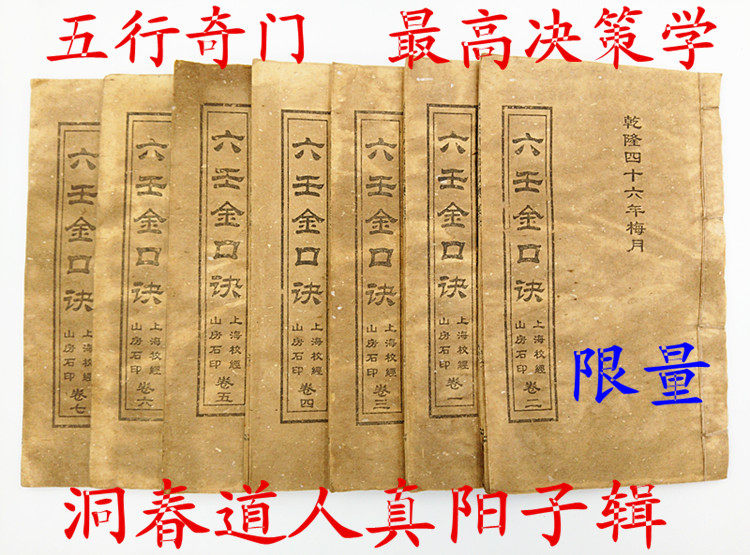 五行奇门 最高决策学
乾隆四十六年梅月
六壬金口诀
上海校經
山房石印
卷二
六壬金口诀
上海校經
山房石印
卷一
六壬金口诀
上海校經
山房石印
卷三
六壬金口诀
上海校經
山房石印
卷四
六壬金口诀
上海校經
山房石印
卷五
六壬金口诀
上海校經
山房石印
卷六
六壬金口诀
上海校經
山房石印
卷七
限量
洞春道人真阳子辑